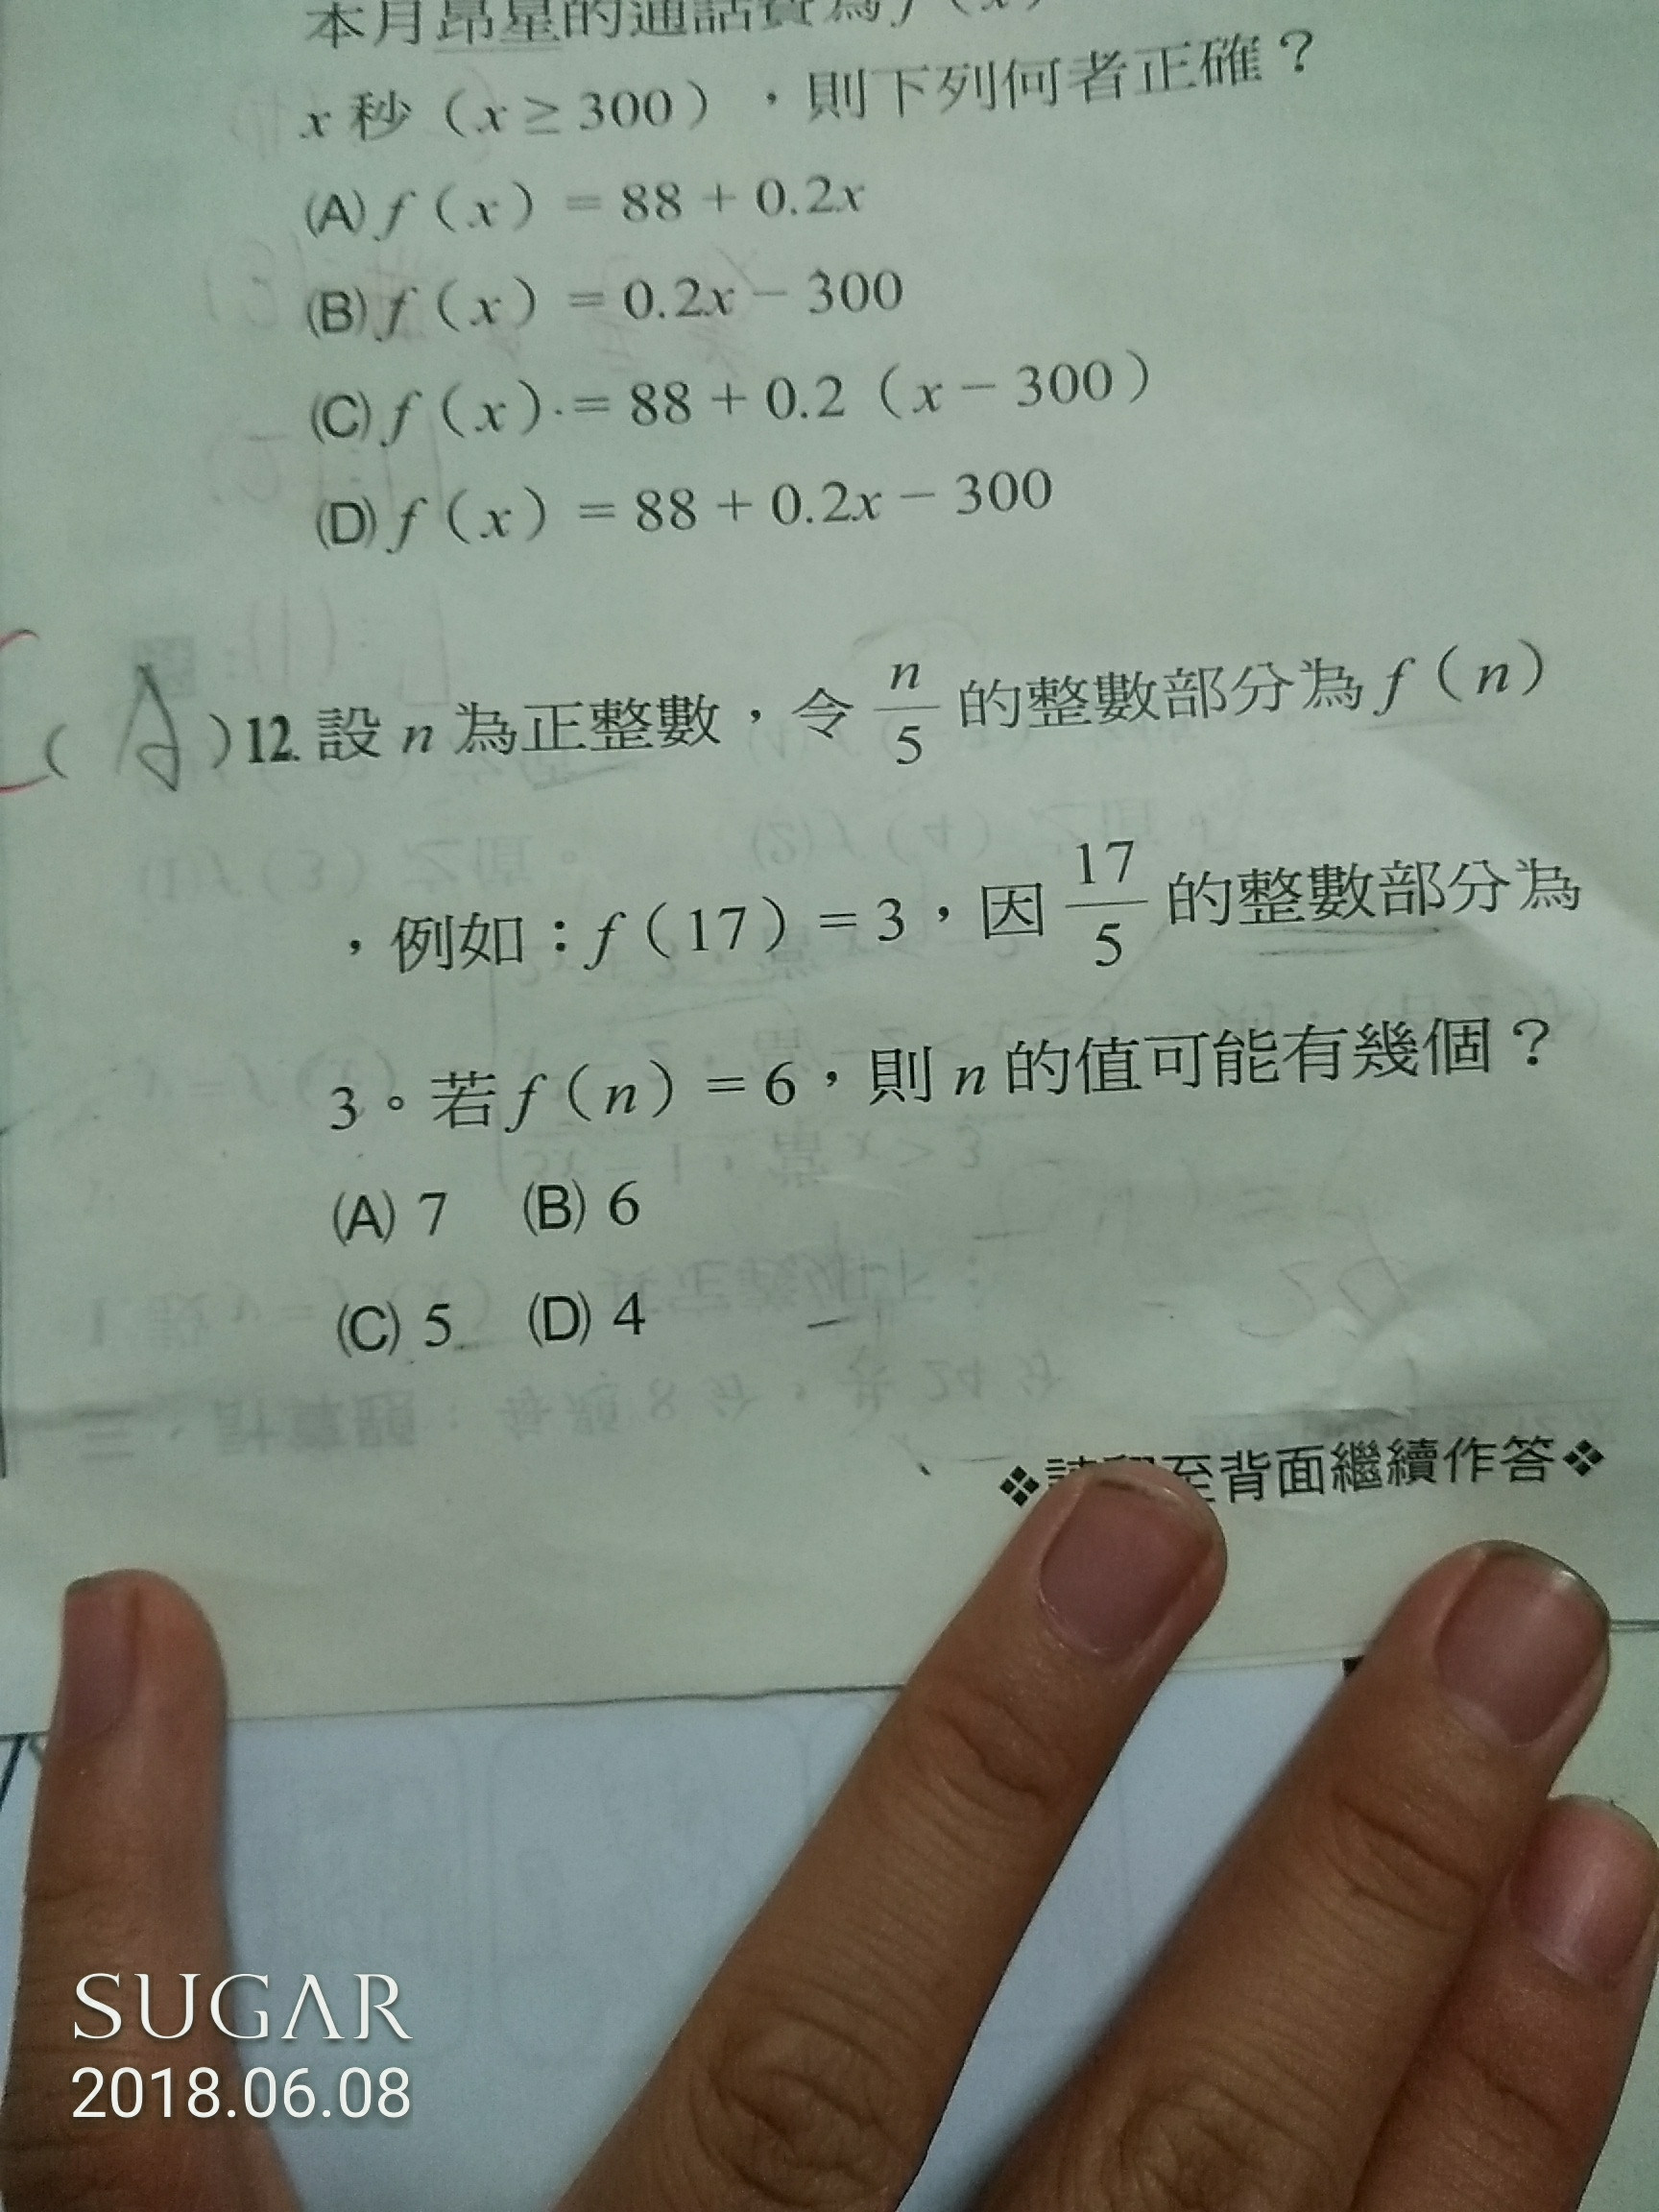 本月昴星的通話費為 f(x)
x 秒(x ≥ 300),則下列何者正確?
(A) f(x) = 88 + 0.2x
(B) f(x) = 0.2x − 300
(C) f(x) = 88 + 0.2(x − 300)
(D) f(x) = 88 + 0.2x − 300
(A)12. 設 n 為正整數,令 n/5 的整數部分為 f(n)
,例如:f(17) = 3,因 17/5 的整數部分為
3。若 f(n) = 6,則 n 的值可能有幾個?
(A) 7 (B) 6
(C) 5 (D) 4
❖至背面繼續作答❖
SUGAR
2018.06.08